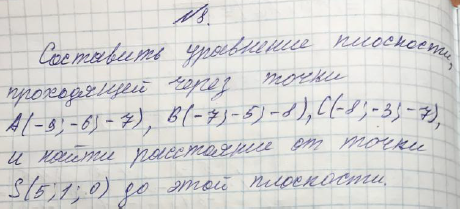 №8.
Составить уравнение плоскости,
проходящей через точки
A(-9;-6;-7), B(-7;-5;-8), C(-8;-3;-7),
и найти расстояние от точки
S(5;1;0) до этой плоскости.